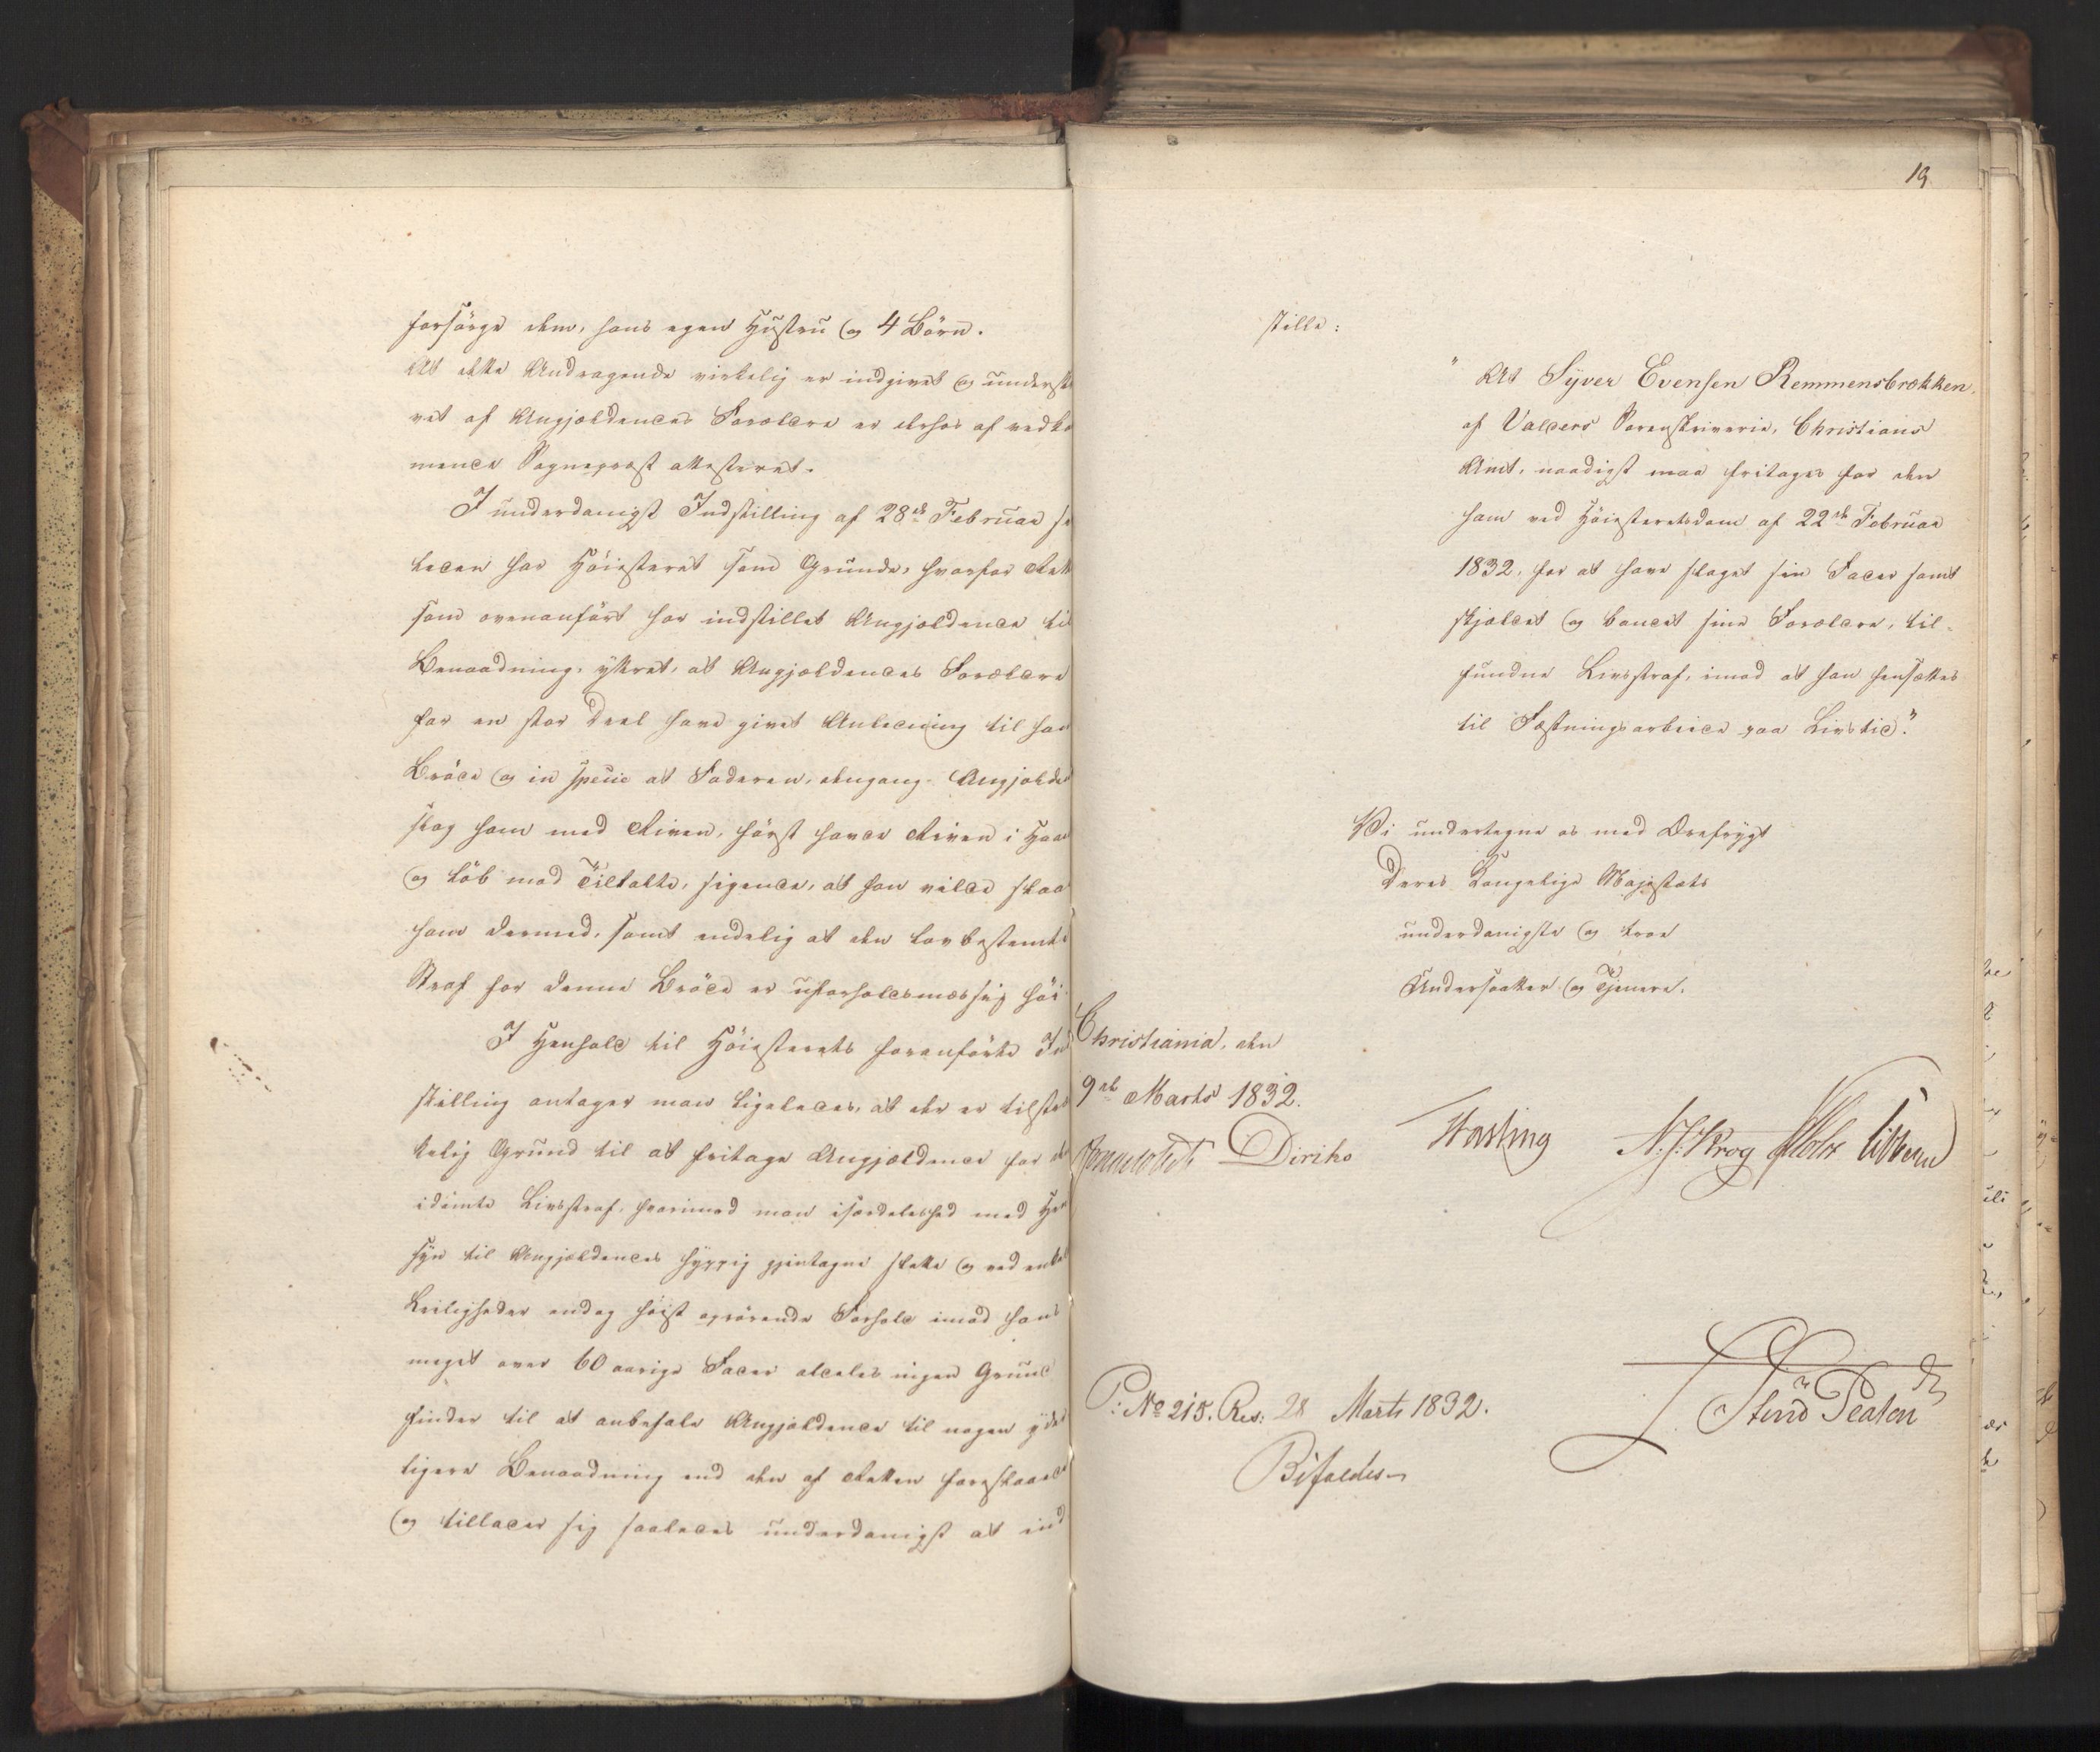 forsörge dem, hans egen Hustru og 4 Börn.
At dette Andragende virkelig er indgivet og underskre
vet af Angjældendes Forældre er derhos af vedkom
mende Sogneprest attesteret.
I underdanigst Indstilling af 28de Februar sidst
leden har Höiesteret som Grunde, hvorfor Retten
som ovenanfört har indstillet Angjældende til
Benaadning, yttret, at Angjældendes Forældre
for en stor Deel have givet Anledning til hans
Bröde og in specie at Faderen, dengang Angjældende
slog ham med Riven, först havde Riven i Haanden
og löb mod Tiltalte, sigende, at han vilde slaae
ham dermed, samt endelig at den lovbestemte
Straf for denne Bröde er uforholdsmæssig höi.
I Henhold til Höiesterets foranförte Ind
stilling antager man ligeledes, at der er tilstræk
kelig Grund til at fritage Angjældende for den
idömte Livsstraf, hvorimod man isærdeleshed med Hen
syn til Angjældendes hyppig gjentagne slette og ved enkelte
Leiligheder endog höist oprörende Forhold imod hans
meget over 60 aarige Fader aldeles ingen Grund
finder til at anbefale Angjældende til nogen yder
ligere Benaadning end den af Retten foreslaaede
og tillader sig saaledes underdanigst at ind
19
stille:
"At Syver Evensen Remmensbrækken,
af Valders Sorenskriverie, Christians
Amt, naadigst maa fritages for den
ham ved Höiesteretsdom af 22de Februar
1832, for at have slaget sin Fader samt
skjældet og bandet sine Forældre, til-
fundne Livsstraf, imod at han hensættes
til Fæstningsarbeide paa Livstid."
Vi undertegne os med Ærefrygt
Deres Kongelige Majestæts
underdanigste og troe
Undersaatter og Tjenere.
Christiania, den
9de Marts 1832.
Diriks Fasting N. J. Krog Holst Vibe
P: No 215. Res: 28 Marts 1832.
Bifaldes